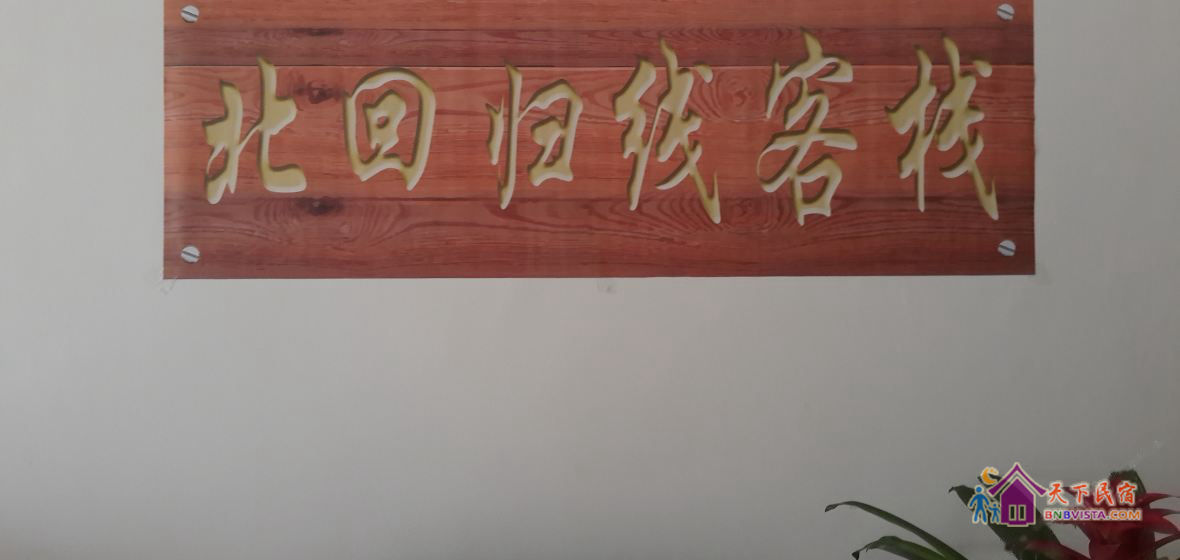 北回归线客栈
天下民宿
BNBVISTA.COM